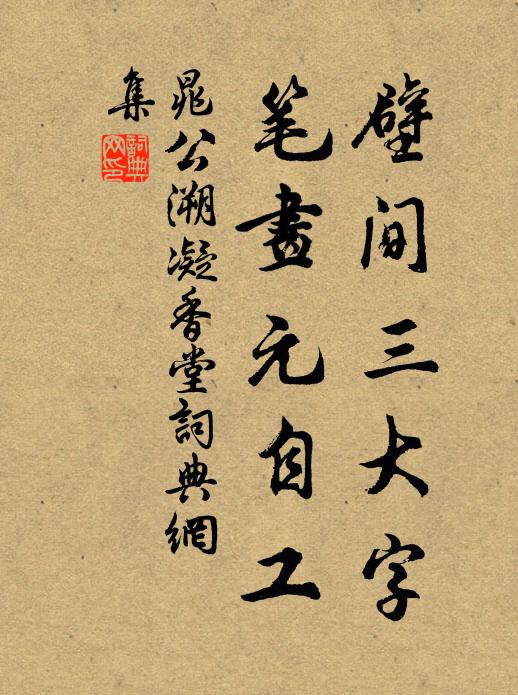 壁间三大字
笔畫元自工
晁公溯凝香堂詞典網
集
詞典
网印